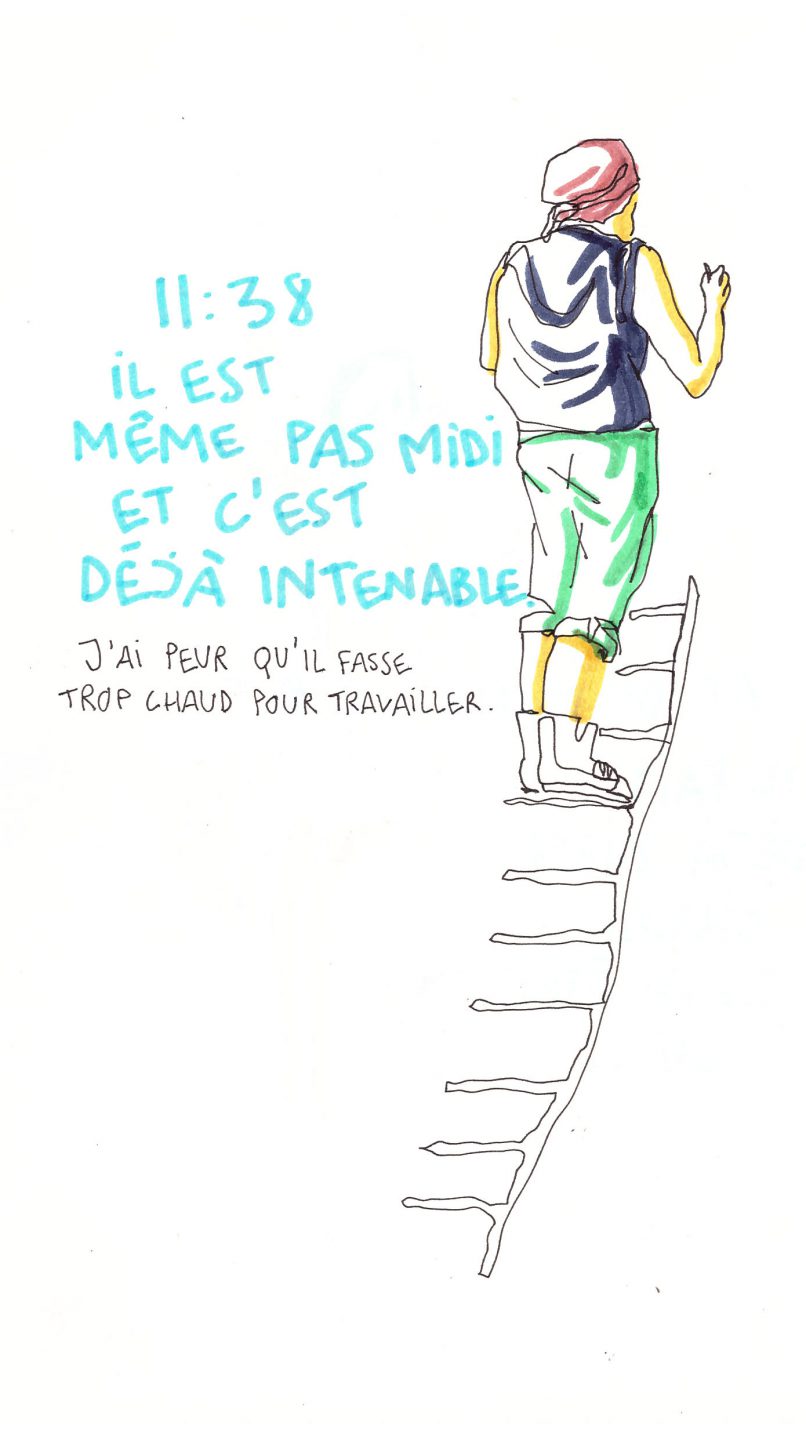 11:38
iL EST
MÊME PAS MiDi
ET C'EST
DÉJÀ INTENABLE.
J'Ai PEUR QU'iL FASSE
TROP CHAUD POUR TRAVAiLLER.